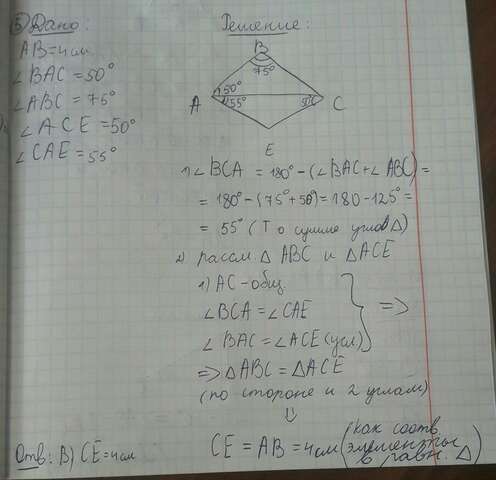 5) Дано:
AB=4 см
∠BAC=50°
∠ABC=75°
∠ACE=50°
∠CAE=55°
Решение:
B
75°
A
50°
55°
50°
C
E
1) ∠BCA = 180° - (∠BAC+∠ABC) =
= 180° - (75°+50°) = 180 - 125° =
= 55° (Т о сумме углов Δ)
2) рассм Δ ABC и ΔACE
1) AC - общ
∠BCA = ∠CAE
∠BAC = ∠ACE (усл)
=>
=> ΔABC = ΔACE
(по стороне и 2 углам)
⇓
CE = AB = 4 см (как соотв. элементы в равн. Δ)
Отв: В) CE=4 см